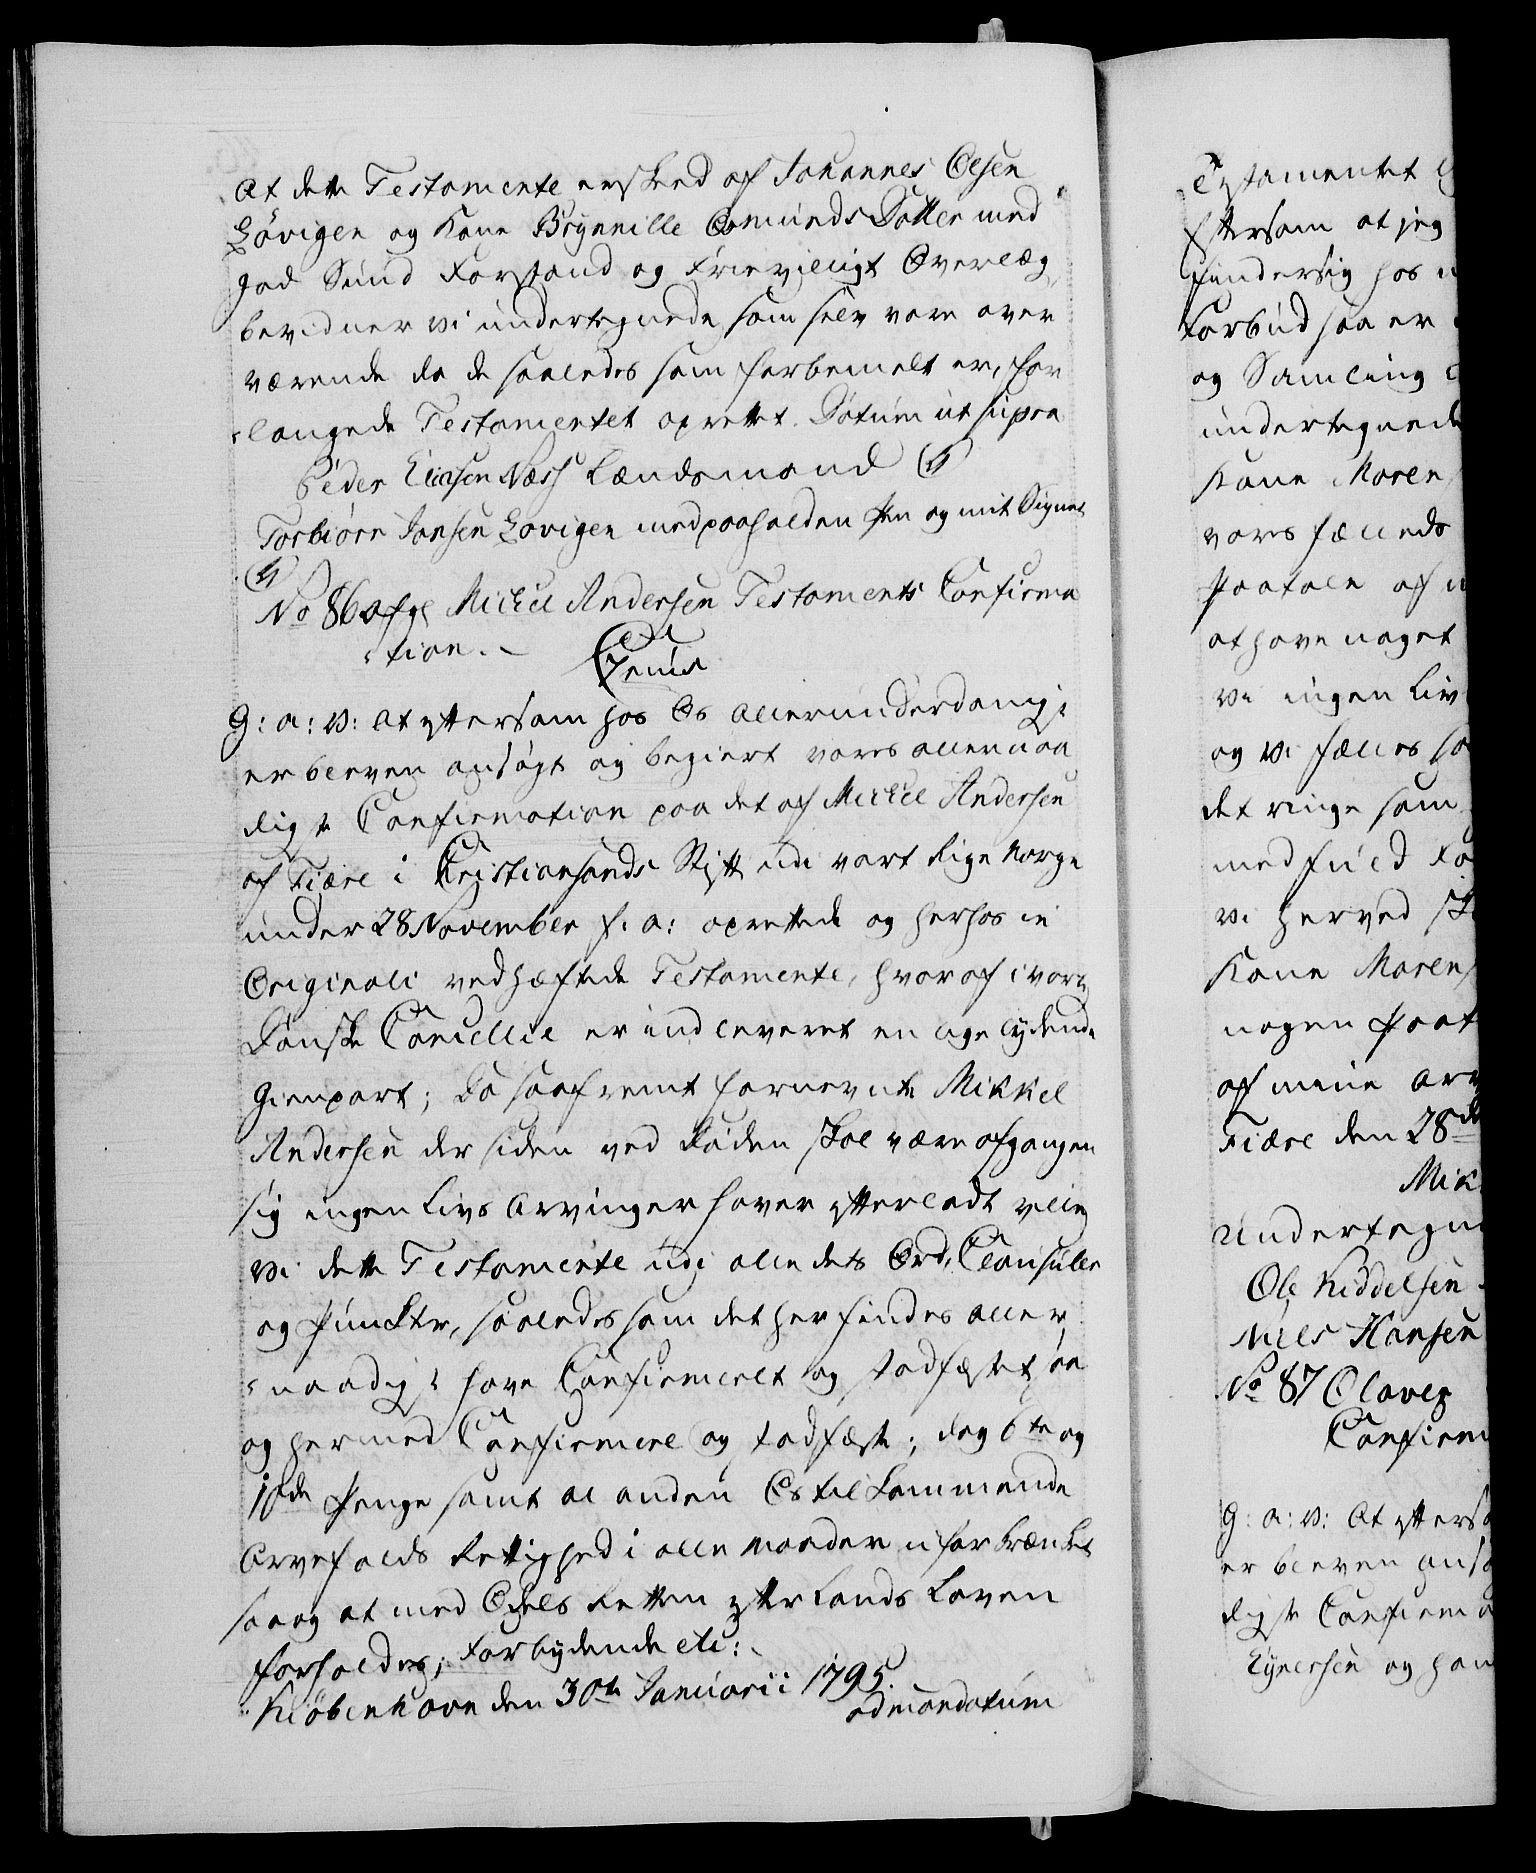 At dette Testamente er skeed af Johannes Olsen
Løvigen og Kone Brynnille Omunds Datter med
god Sund Forstand og Frievilligt Overlæg,
bevidner vi undertegnede som selv vare over
værende da de saaledes som forbemelt er, for
langede Testamentet oprettet. Datum ut supra
Peder Eliasen Næss Lændsmand
Torbiørn Jansen Lovigen med paaholden Pen og mit Signet
No 86 Afg: Mickel Andersen Testaments Confirma
tion. –
Genus
G: a: V: At eftersom hos Os allerunderdanigst
er bleven ansøgt og begiert vores allernaa
digste Confirmation paa det af Mickel Andersen
af Fiære i Christiansands Stift udi vort Rige Norge
under 28 November f. a: oprettede og herhos in
Originali vedhæftede Testamente, hvoraf i vores
Danske Cancellie er indleveret en ligelydende
Gienpart; Da saafremt fornevnte Mikkel
Andersen der siden ved Døden skal være afgangen
sig ingen Livs Arvinger haver efterladt ville
Vi dette Testamente udi alle dets Ord, Clausuler
og Puncter, saaledes som det her findes aller
naadigst have Confirmeret og stadfæstet, saa
og hermed Confirmere og stadfæste; dog 6te og
10de Penge samt al anden Os tilkommende
Arvefalds Rettighed i alle Maader uforkrænket
saa og at med Odels Retten efter Lands Loven
forholdes; Forbydende etc:
Kiøbenhavn den 30te Januarii 1795.
ad mandatum
Testamentet
Eftersom at jeg
findersig hos
Forbud saa er
og Samling
undertegnede
Kone Maren
vores fælleds
Paatale af
at have noget
vi ingen Liv
og vi fælles
det ringe som
med fuld
vi herved
Kone Maren
nogen Paat
af mine Arv
Fiære den 28de
Mik
Undertegn
Ole Kiddelsen
Niels Hansen
No 87 Olaves
Confirm
G: a: V: At efterso
er bleven ansø
digste Confirma
Eynersen og han